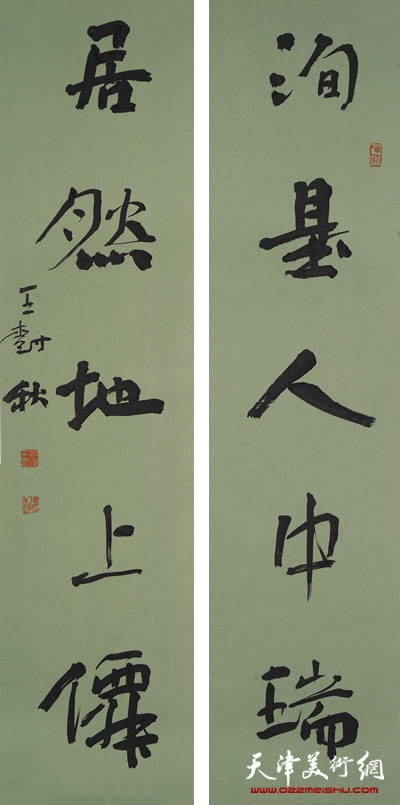 洵是人中瑞
居然地上僊
王樹秋
天津美術網
www.022meishu.com